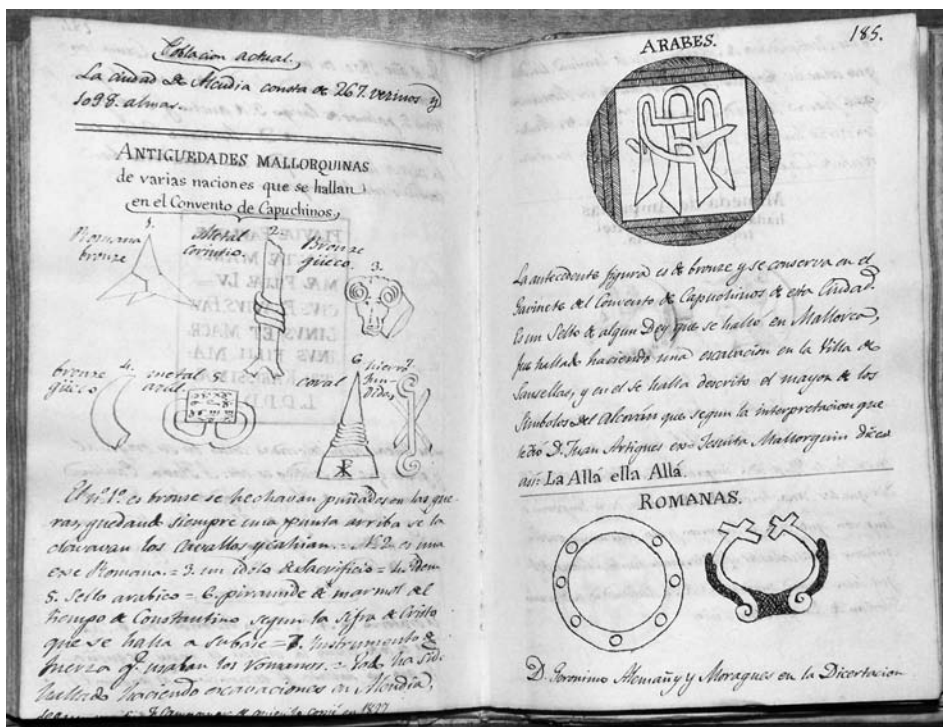 Poblacion actual.
La ciudad de Alcudia consta de 267. vecinos y
1098. almas.
ANTIGUEDADES MALLORQUINAS
de varias naciones que se hallan
en el Convento de Capuchinos,
1. 2.
Romana bronze
Metal corintio.
Bronze güeco.
3.
bronze güeco
4. metal 5. azul.
coral
6 hierro 7.
fundido,
El nº. 1º. es bronse se hechavan puñados en las gue
ras, quedando siempre una punta arriba se la
clavavan los Cavallos y cahian. = Nº. 2. es una
exe Romana. = 3. un idolo de sacrificio = 4. idem
5. Sello arabico = 6. piramide de marmol del
tiempo de Constantino segun la Sifra de Cristo
que se halla a su base = 7. Instrumento de
fuerza q. usavan los Romanos. = ha sido
hallado haciendo excavaciones en Alcudia,
en 1827
185.
ARABES.
La antecedente figura es de bronze y se conserva en el
Gavinete del Convento de Capuchinos de esta Ciudad.
Es un Sello de algun Dey que se halló en Mallorca,
fue hallado haciendo una escavacion en la Villa de
Sansellas, y en el se halla descrito el mayor de los
Simbolos del Alcorán que segun la interpretacion que
le dió D. Juan Artigues ex-Jesuita Mallorquin dice
asi: La Allá ella Allá.
ROMANAS.
D. Geronimo Alemañy y Moragues en la Dicertacion